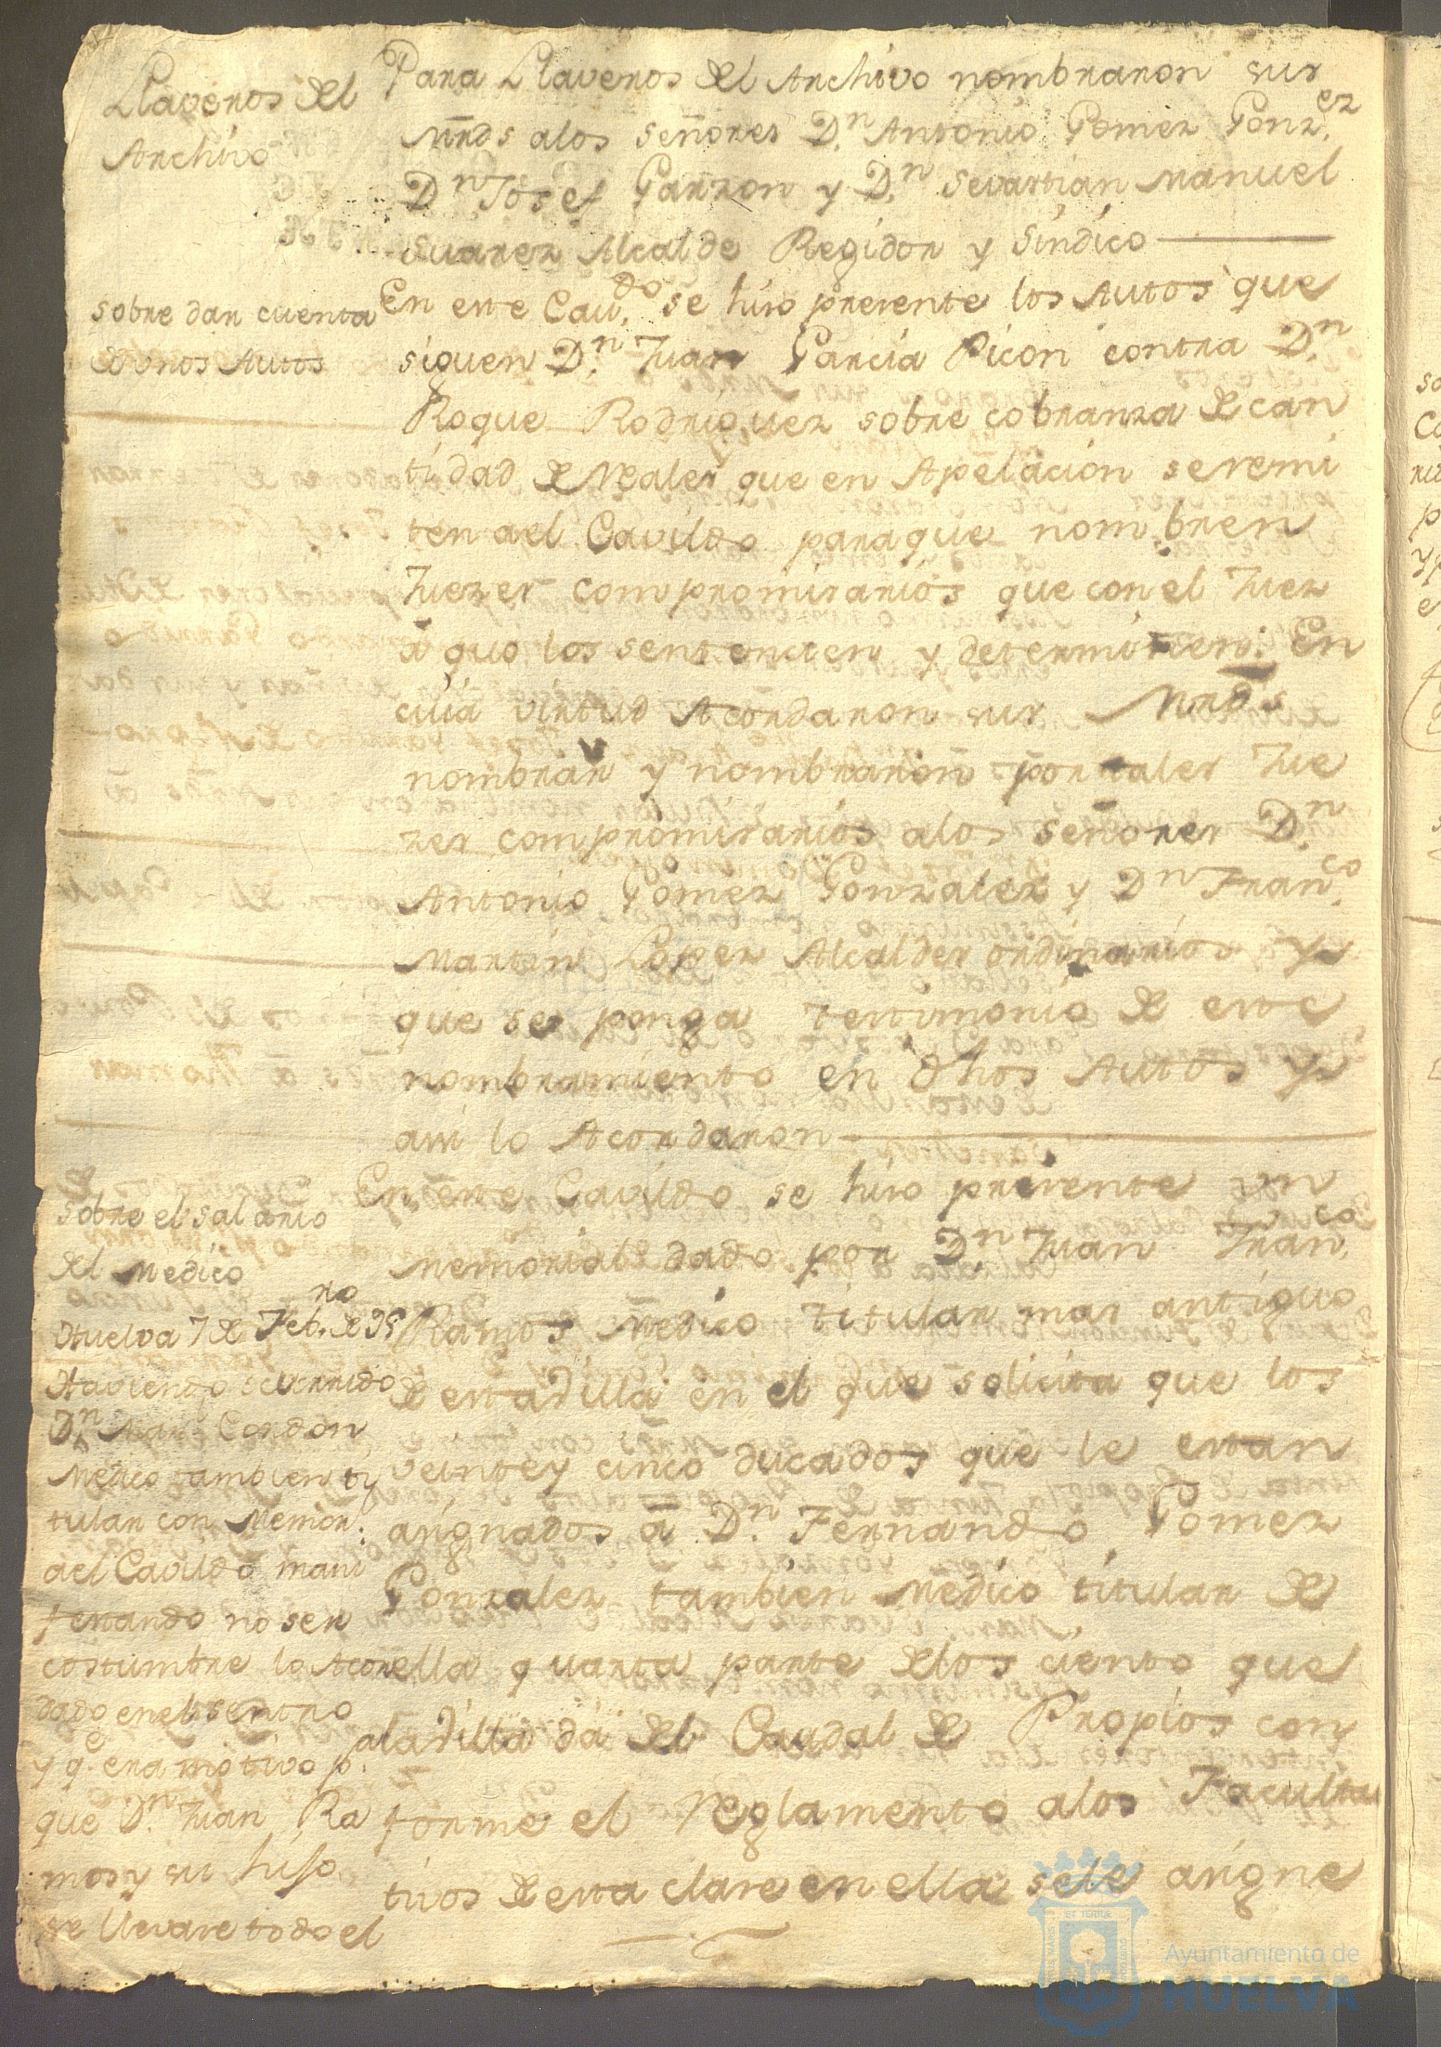 Llaveros del
Archivo
Para Llaveros del Archivo nombraron sus
Mrds alos señores Dn. Antonio Gomez Gonz.ez
Dn Josef Garzon y Dn. Sevastian Manuel
Suarez Alcalde Regidor y Sindico
sobre dar cuenta
de unos Autos
En este Cav.do se hiso presente los Autos que
siguen Dn. Juan Garcia Picon contra Dn.
Roque Rodriguez sobre cobranza de can
tidad de Reales que en Apelacion se remi
ten ael Cavildo paraque nombren
Juezes compromisarios que con el Juez
à quo los sentencien y determinen: En
cuia virtud Acordaron sus Mrds
nombrar y nombraron por tales Jue
zes compromisarios alos señores Dn.
Antonio Gomez Gonzalez y Dn Fran.co
Martin Lopez Alcaldes ordinarios y
que se ponga testimonio de este
nombramiento en dhos Autos y
asi lo Acordaron
sobre el salario
del Medico
Huelva 7 de Feb.ro de 95
Haviendo ocurrido
Dn. Cordon
Medico tambien ti
tular con Memor.l
ael Cavildo mani
festando no ser
costumbre lo Acor
dado en el sentro
y q.e era motivo p.a
que Dn. Juan Ra
mos y su hijo
se llevare todo el
En este Cavildo se hiso presente un
Memorial dado por Dn. Juan Fran.co
Ramos Medico titular mas antiguo
de esta dilla en el que solicita que los
veinte y cinco ducados que le estan
asignados à Dn. Fernando Gomez
Gonzalez tambien Medico titular de
ella quarta parte delos ciento que
aladilla da del Caudal de Propios con
forme el Reglamento alos Facultà
tivos de esta clare en ella sele asigne
Ayuntamiento de
HUELVA